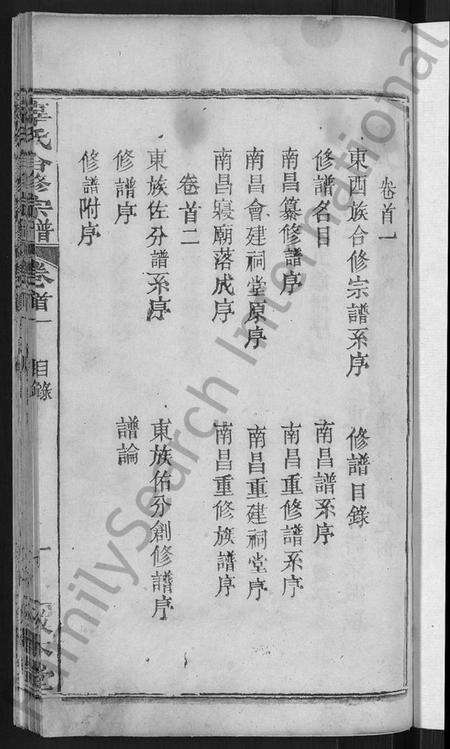 卷首一
東西族合修宗譜系序　修譜目錄
修譜名目　南昌譜系序
南昌纂修譜序　南昌重修譜系序
南昌會建祠堂原序　南昌重建祠堂序
南昌寢廟落成序　南昌重修族譜序
卷首二
東族佐分譜系序　東族佑分創修譜序
修譜序　譜論
修譜附序
氏合修宗譜　卷首一　目錄　一
FamilySearch International